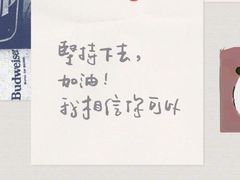 堅持下去,
加油!
我相信你可以
Budweiser